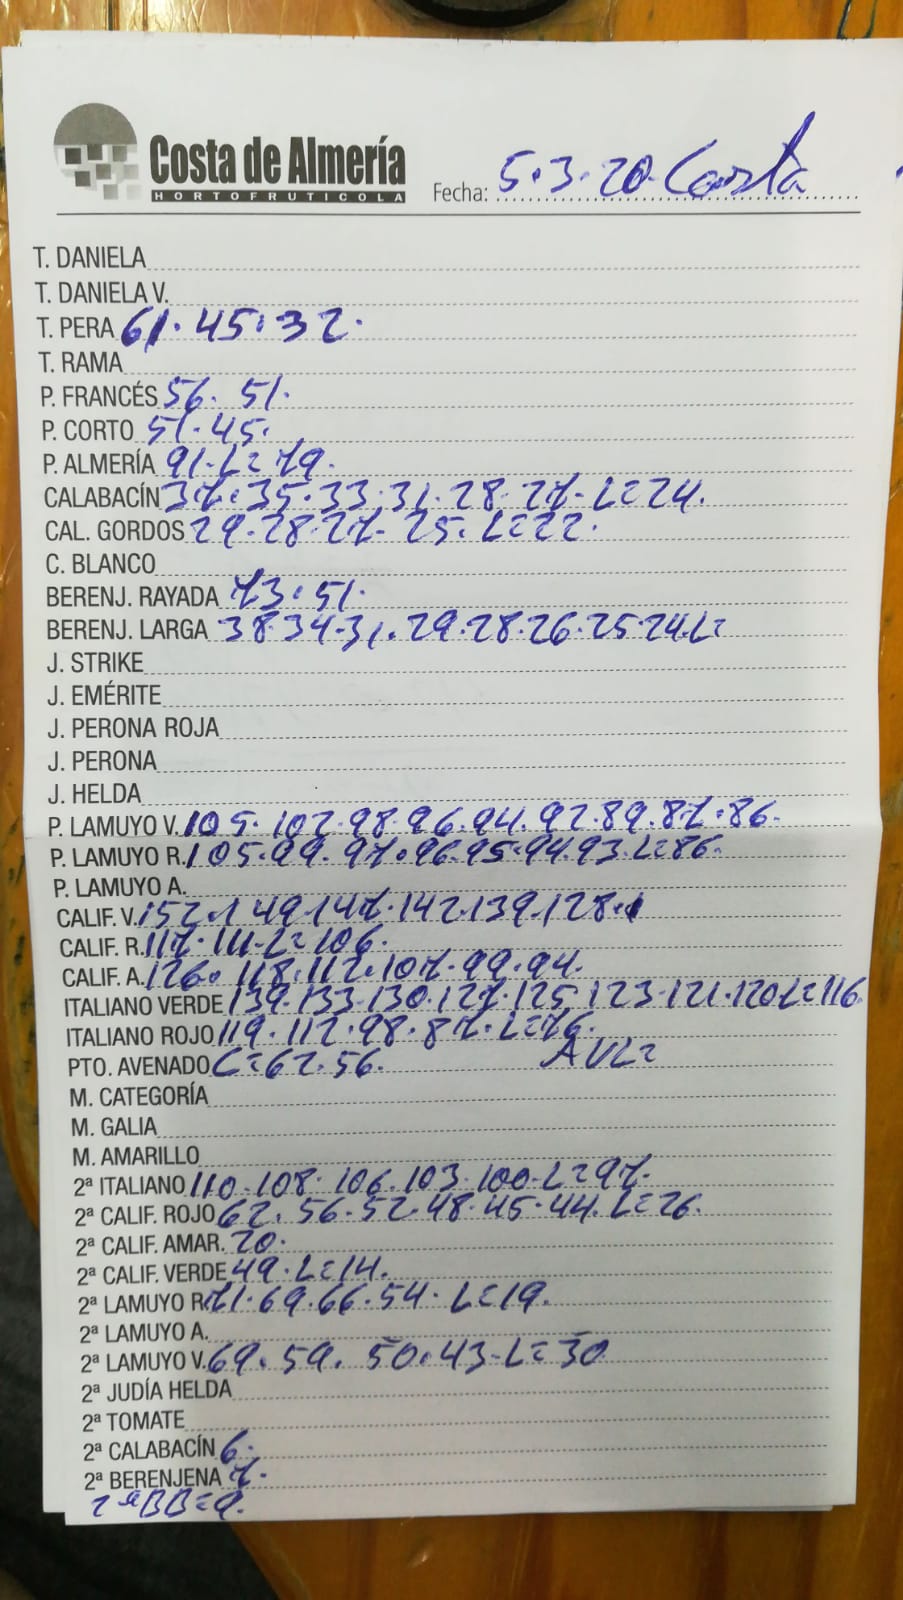 Costa de Almería
HORTOFRUTICOLA
Fecha: 5.3.20. Costa
T. DANIELA
T. DANIELA V.
T. PERA 61.45.32.
T. RAMA
P. FRANCÉS 56. 51.
P. CORTO 51.45.
P. ALMERÍA 91.L=79.
CALABACÍN 37.35.33.31.28.27.L=24.
CAL. GORDOS 29.28.27.25.L=22.
C. BLANCO
BERENJ. RAYADA 73.51.
BERENJ. LARGA 38.34.31.29.28.26.25.24.L=
J. STRIKE
J. EMÉRITE
J. PERONA ROJA
J. PERONA
J. HELDA
P. LAMUYO V. 105.102.98.96.94.92.89.87.86.
P. LAMUYO R. 105.99.97.96.95.94.93.L=86.
P. LAMUYO A.
CALIF. V. 152.149.147.142.139.128.
CALIF. R. 117.111.L=106.
CALIF. A. 126.118.112.107.99.94.
ITALIANO VERDE 139.133.130.127.125.123.121.120L=116.
ITALIANO ROJO 119.112.98.87.L=76.
PTO. AVENADO C=62.56. AVL=
M. CATEGORÍA
M. GALIA
M. AMARILLO
2ª ITALIANO 110.108.106.103.100.L=97.
2ª CALIF. ROJO 62.56.52.48.45.44.L=26.
2ª CALIF. AMAR. 20.
2ª CALIF. VERDE 49.L=14.
2ª LAMUYO R. 71.69.66.54.L=19.
2ª LAMUYO A.
2ª LAMUYO V. 69.59.50.43.L=30
2ª JUDÍA HELDA
2ª TOMATE
2ª CALABACÍN 6.
2ª BERENJENA 7.
2ª BB=9.